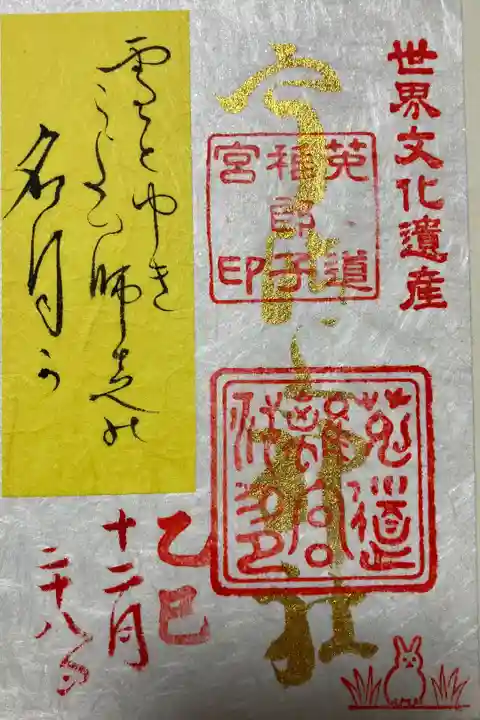 世界文化遺産
宇治上神社
菟道
稚郎子
宮印
雪とゆき
こよひ師走の
名月か
乙巳
十二月
二十八日